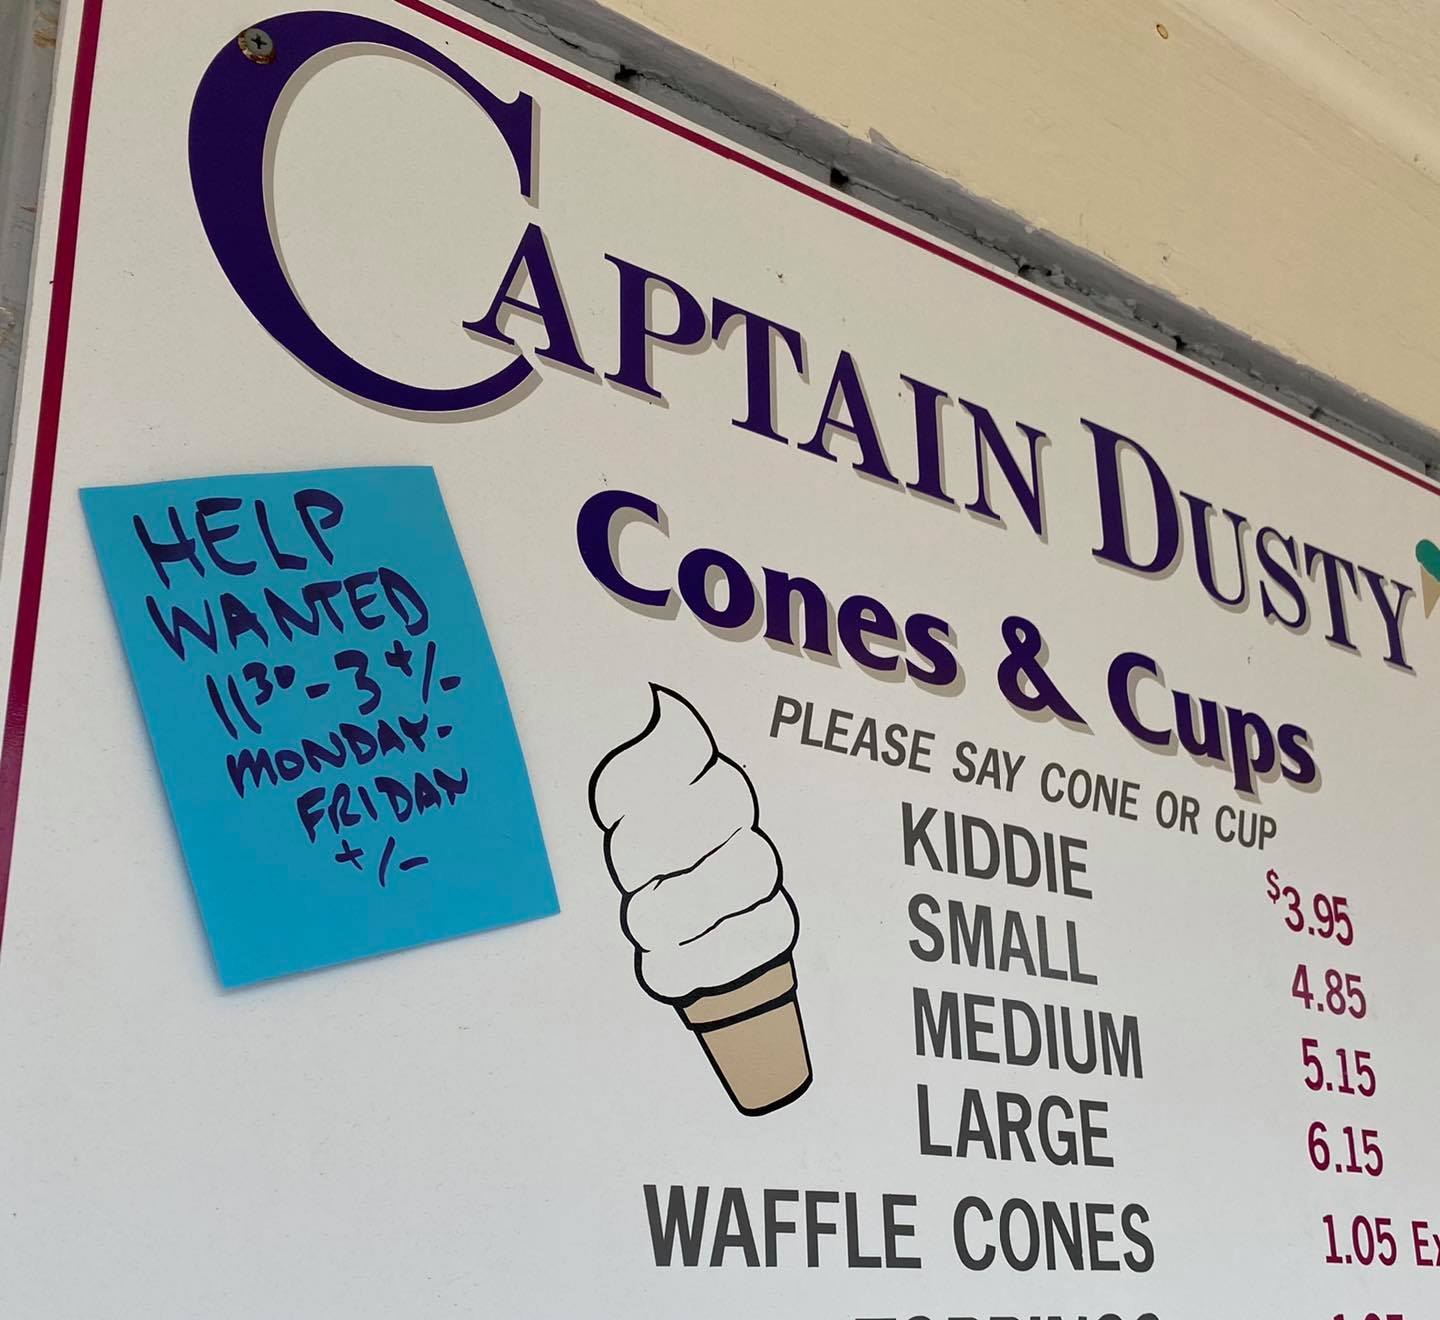 CAPTAIN DUSTY
Cones & Cups
PLEASE SAY CONE OR CUP
KIDDIE $3.95
SMALL 4.85
MEDIUM 5.15
LARGE 6.15
WAFFLE CONES 1.05
HELP
WANTED
11³⁰-3 +/-
MONDAY-
FRIDAY
+/-